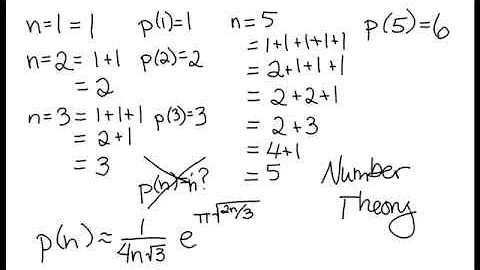 n=1=1 p(1)=1
n=2=1+1 p(2)=2
=2
n=3=1+1+1 p(3)=3
=2+1
=3
p(n)=n?
n=5
=1+1+1+1+1 p(5)=6
=2+1+1+1
=2+2+1
=2+3
=4+1
=5
Number
Theory
p(n)≈1/(4n√3) e^(π√(2n/3))